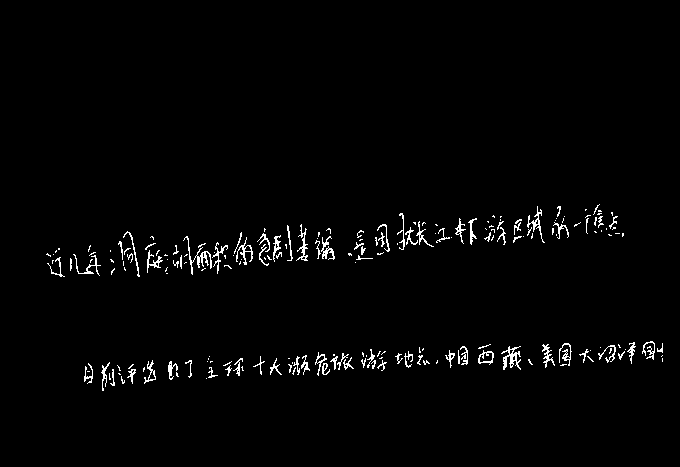 近几年洞庭湖面积的急剧萎缩,是困扰长江中下游区域的一焦点
日前评选出了全球十大濒危旅游地点,中国西藏、美国大沼泽国